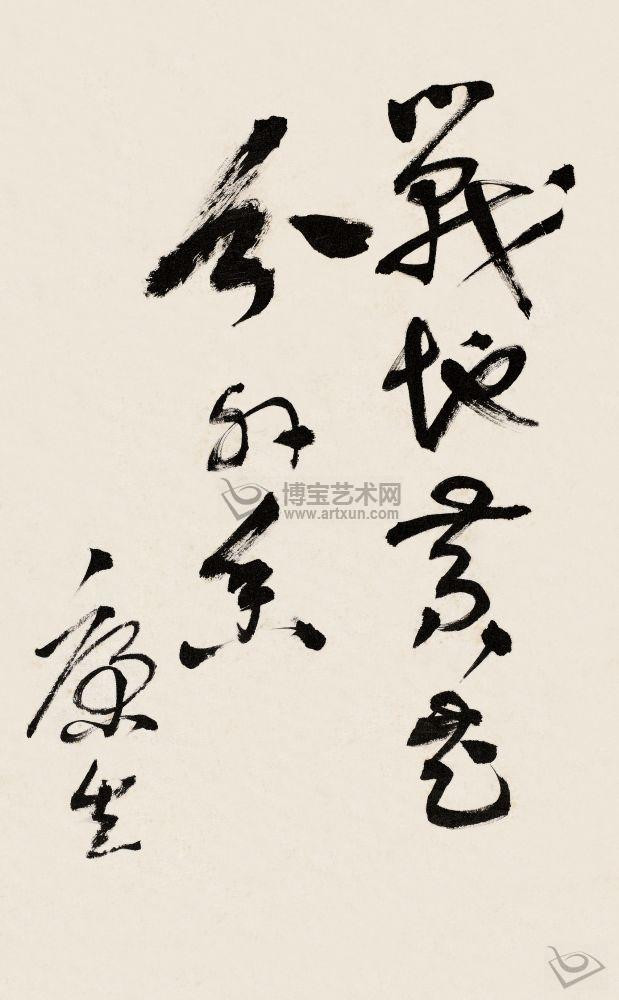 戰地黃花
分外香
康生
博宝艺术网
www.artxun.com